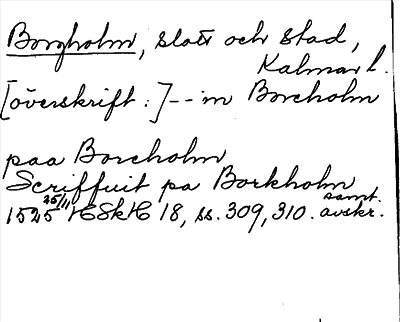 Borgholm, slott och stad,
Kalmar l.
[överskrift:]--in Boreholm
paa Boreholm
Scriffuit pa Borkholm
1525 25/11 HSkH 18, ss. 309, 310. samt. avskr.